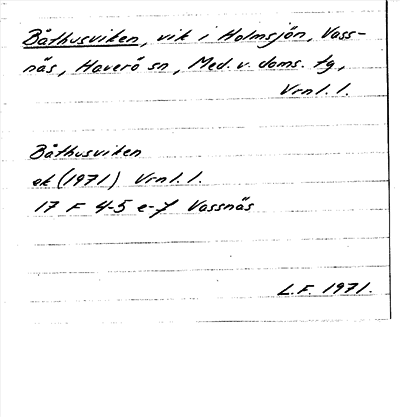 Båthusviken, vik i Holmsjön, Vass-
näs, Haverö sn, Med. v. doms. tg,
Vrnl. 1.
Båthusviken
ek (1971) Vrnl. 1.
17 F 4-5 e-f Vassnäs
L.F. 1971.